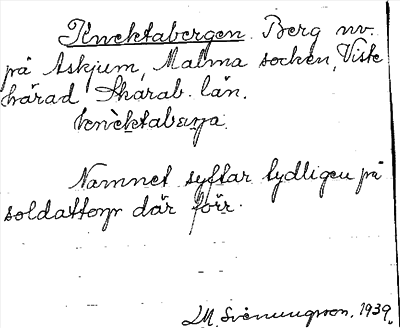 Knektabergen. Berg nv.
på Askjum, Malma socken, Viste
härad Skarab. län.
knèktabærja.
Namnet syftar tydligen på
soldattorp där förr.
M. Svenungsson. 1939.